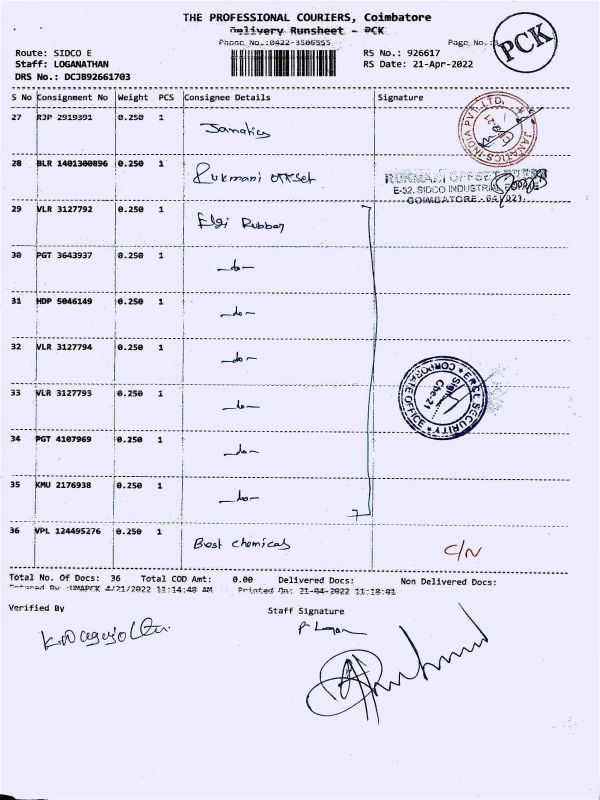 THE PROFESSIONAL COURIERS, Coimbatore
Delivery Runsheet - PCK
Phone No.:0422-3506555 Page No.:3
PCK
Route: SIDCO E RS No.: 926617
Staff: LOGANATHAN RS Date: 21-Apr-2022
DRS No.: DCJ892661703
S No Consignment No Weight PCS Consignee Details Signature
27 RJP 2919391 0.250 1 Jamatics
JAMATICS INDIA PVT. LTD.
28 BLR 1401300896 0.250 1 Rukmani offset
RUKMANI OFFSET
E-52, SIDCO INDUSTRIAL ESTATE
COIMBATORE - 641 021.
29 VLR 3127792 0.250 1 Elgi Rubber
30 PGT 3643937 0.250 1 -do-
31 HDP 5046149 0.250 1 -do-
32 VLR 3127794 0.250 1 -do-
CORPORATE OFFICE ERCL SECURITY
Sign
Cbe-21
33 VLR 3127793 0.250 1 -do-
34 PGT 4107969 0.250 1 -do-
35 KMU 2176938 0.250 1 -do-
36 VPL 124495276 0.250 1 Best chemicals C/N
Total No. Of Docs: 36 Total COD Amt: 0.00 Delivered Docs: Non Delivered Docs:
Entered By :UMAPCK 4/21/2022 11:14:48 AM Printed On: 21-04-2022 11:18:01
Verified By Staff Signature
P Logan